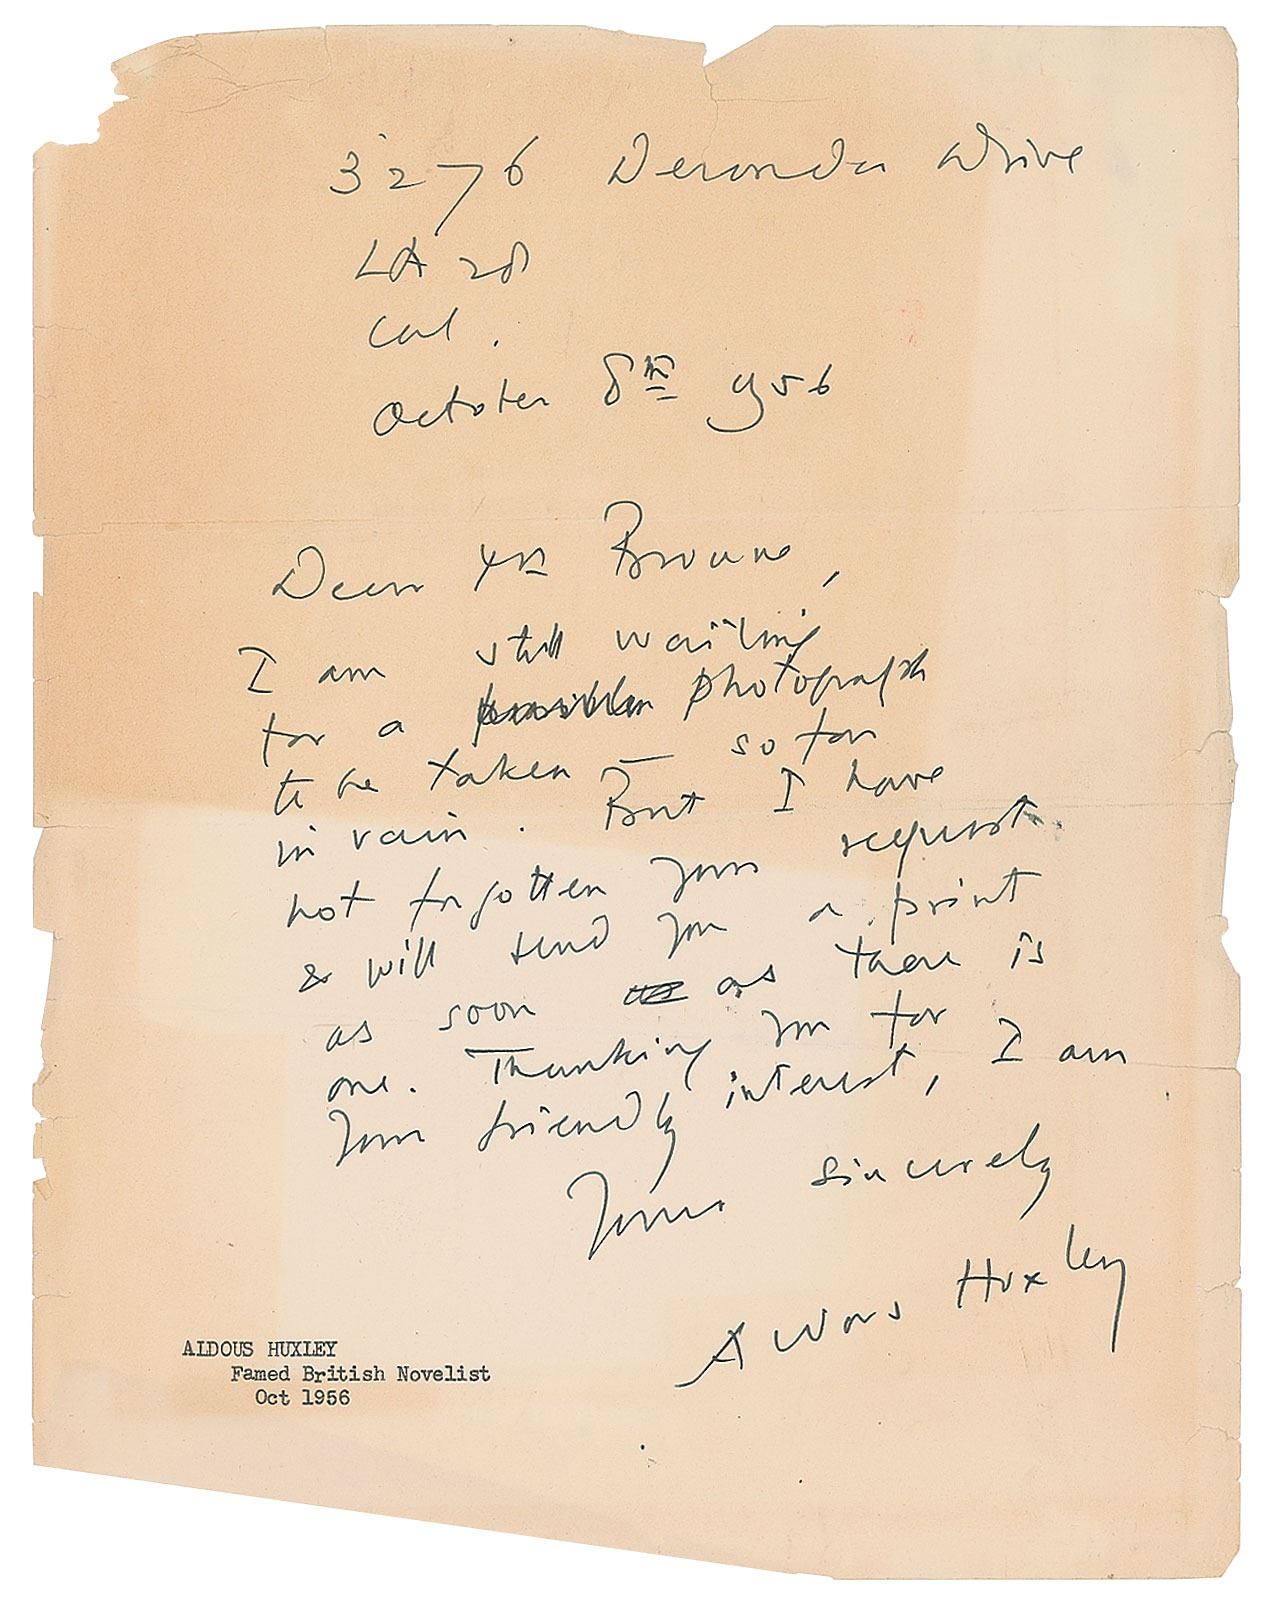 3276 Deronda Drive
LA 28
Cal.
October 8th 1956
Dear Mr Browne,
I am still waiting
for a possible photograph
to be taken — so far
in vain. But I have
not forgotten your request
& will send you a print
as soon as there is
one. Thanking you for
your friendly interest, I am
Yours sincerely
Aldous Huxley
ALDOUS HUXLEY
Famed British Novelist
Oct 1956